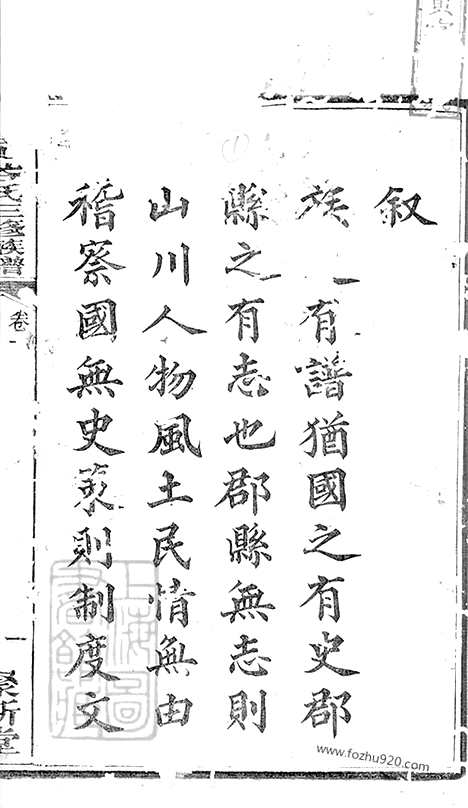 叙
族 有譜猶國之有史郡
縣之有志也郡縣無志則
山川人物風土民情無由
稽察國無史策則制度文
氏三修族譜
卷一
一
上海圖
www.fozhu920.com